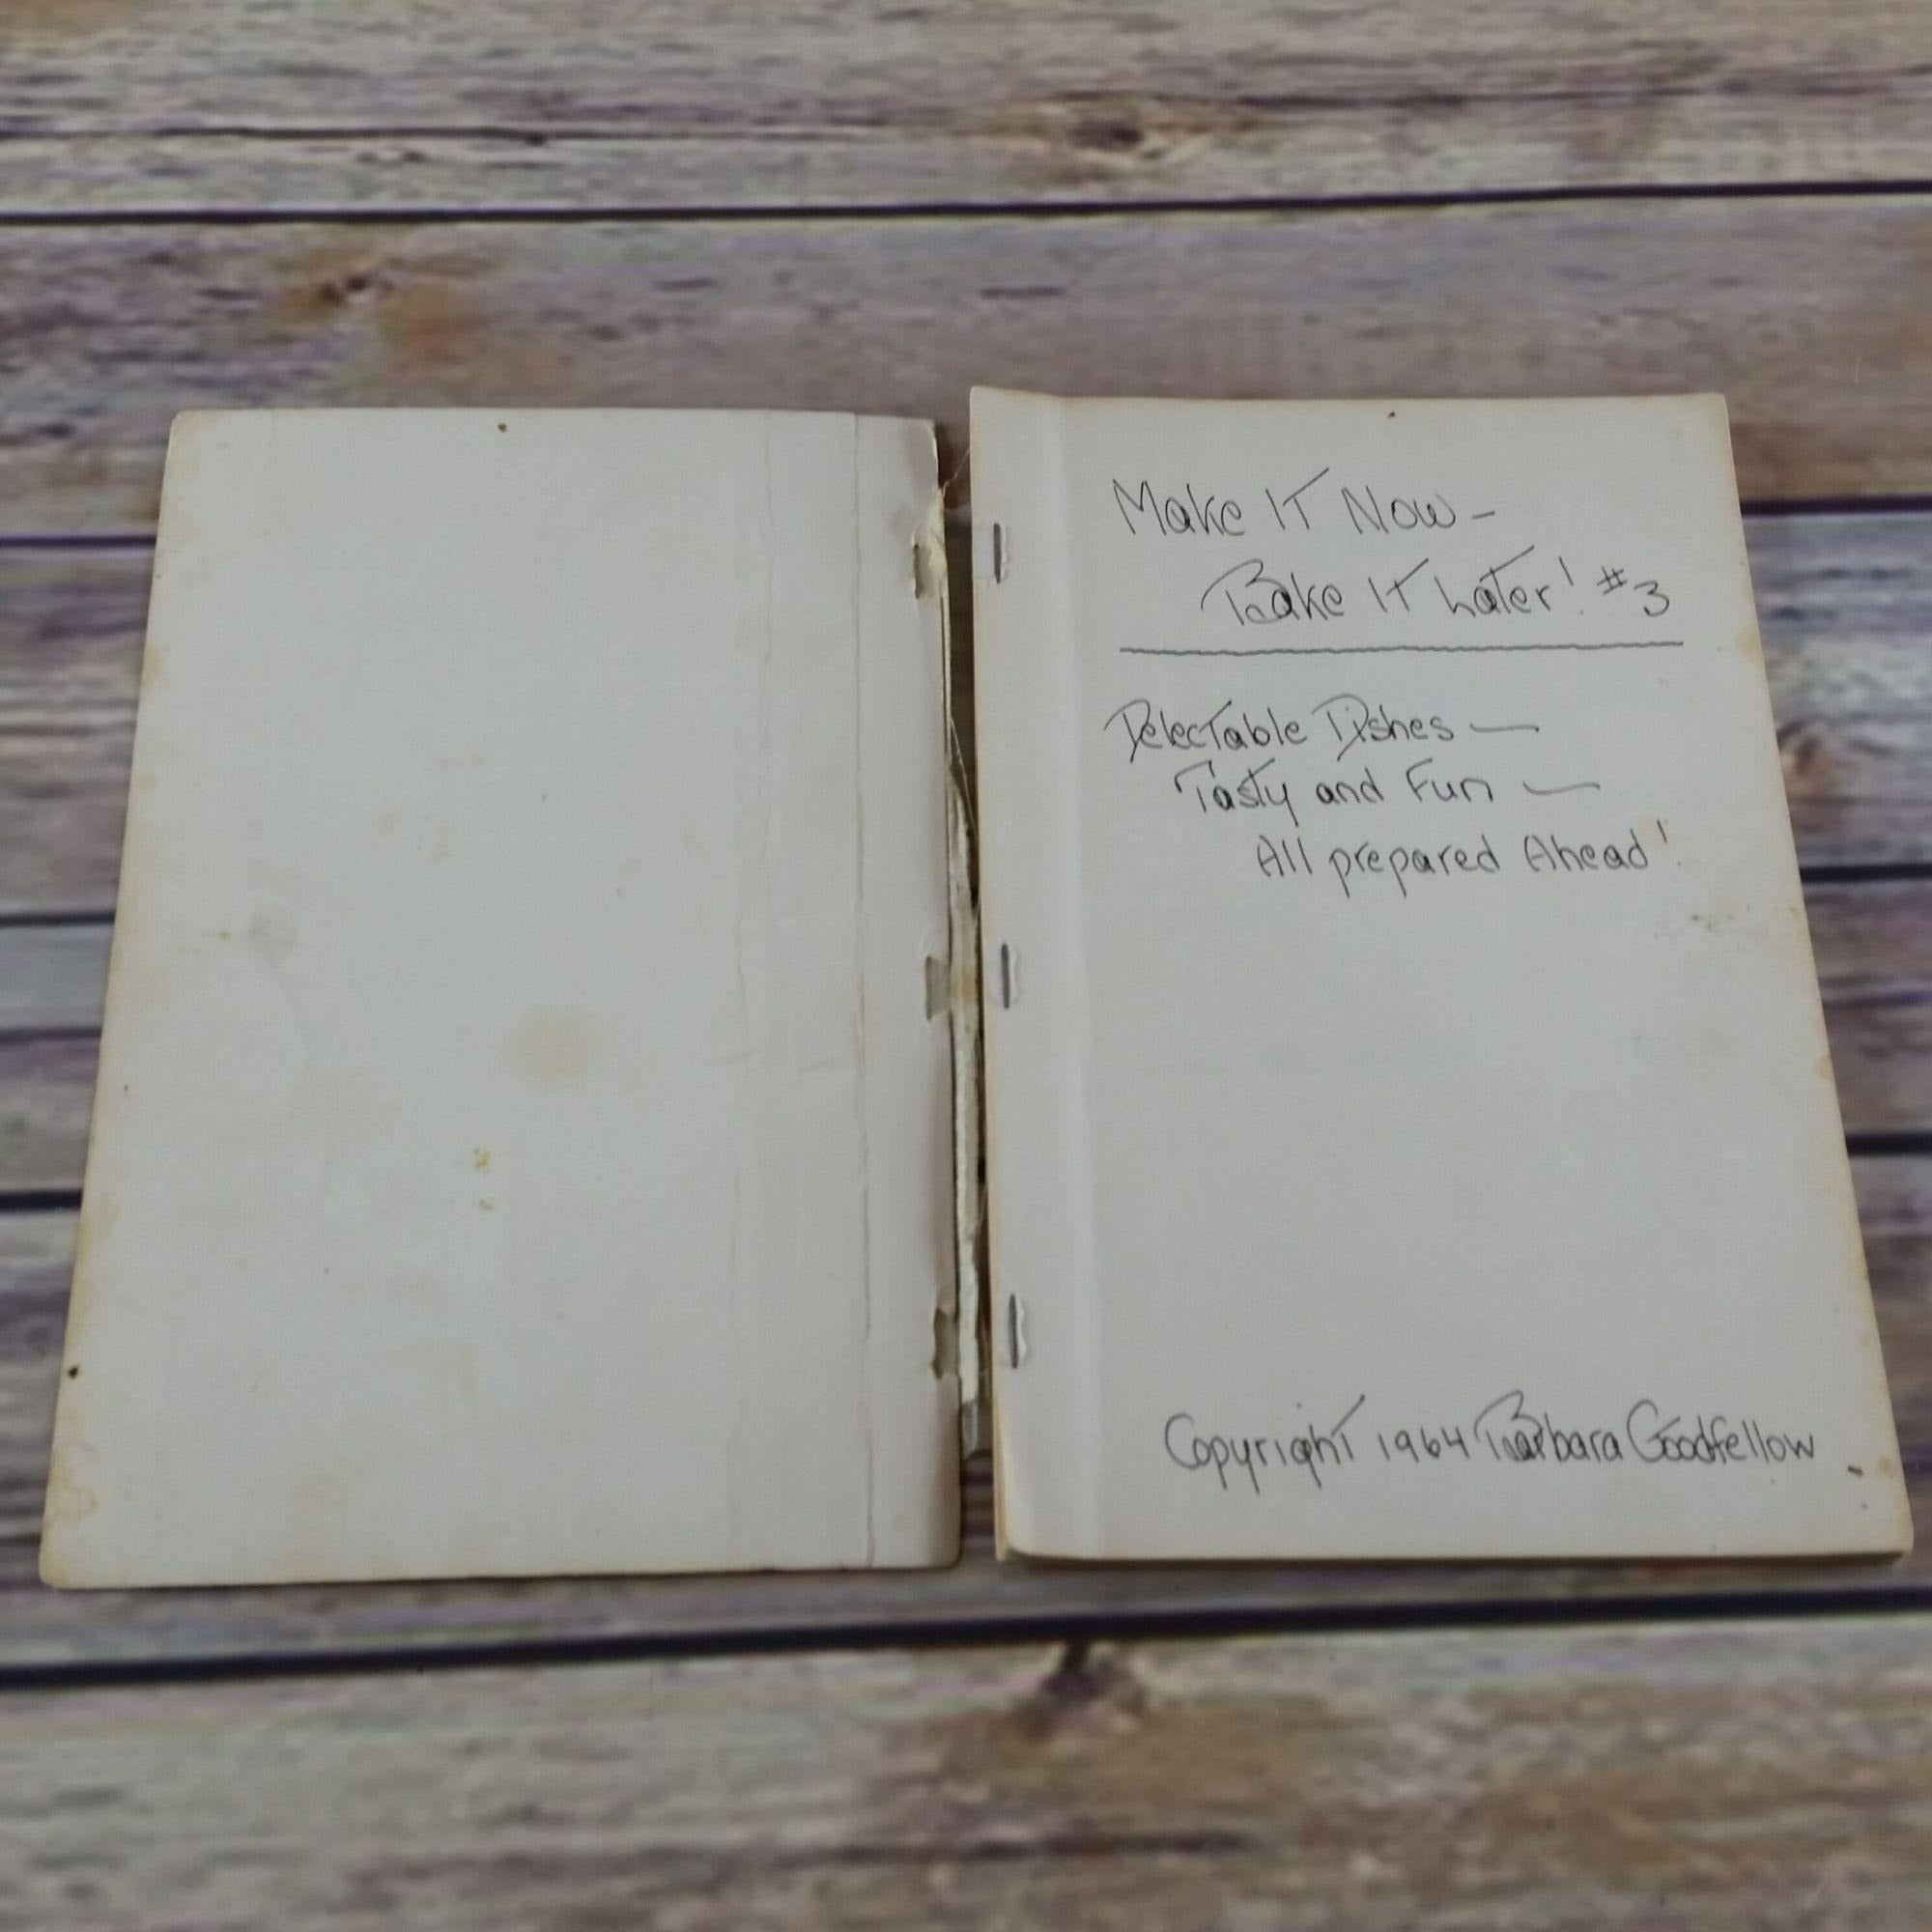 Make IT Now -
Bake IT Later! #3
Delectable Dishes —
Tasty and Fun —
All prepared Ahead!
Copyright 1964 Barbara Goodfellow